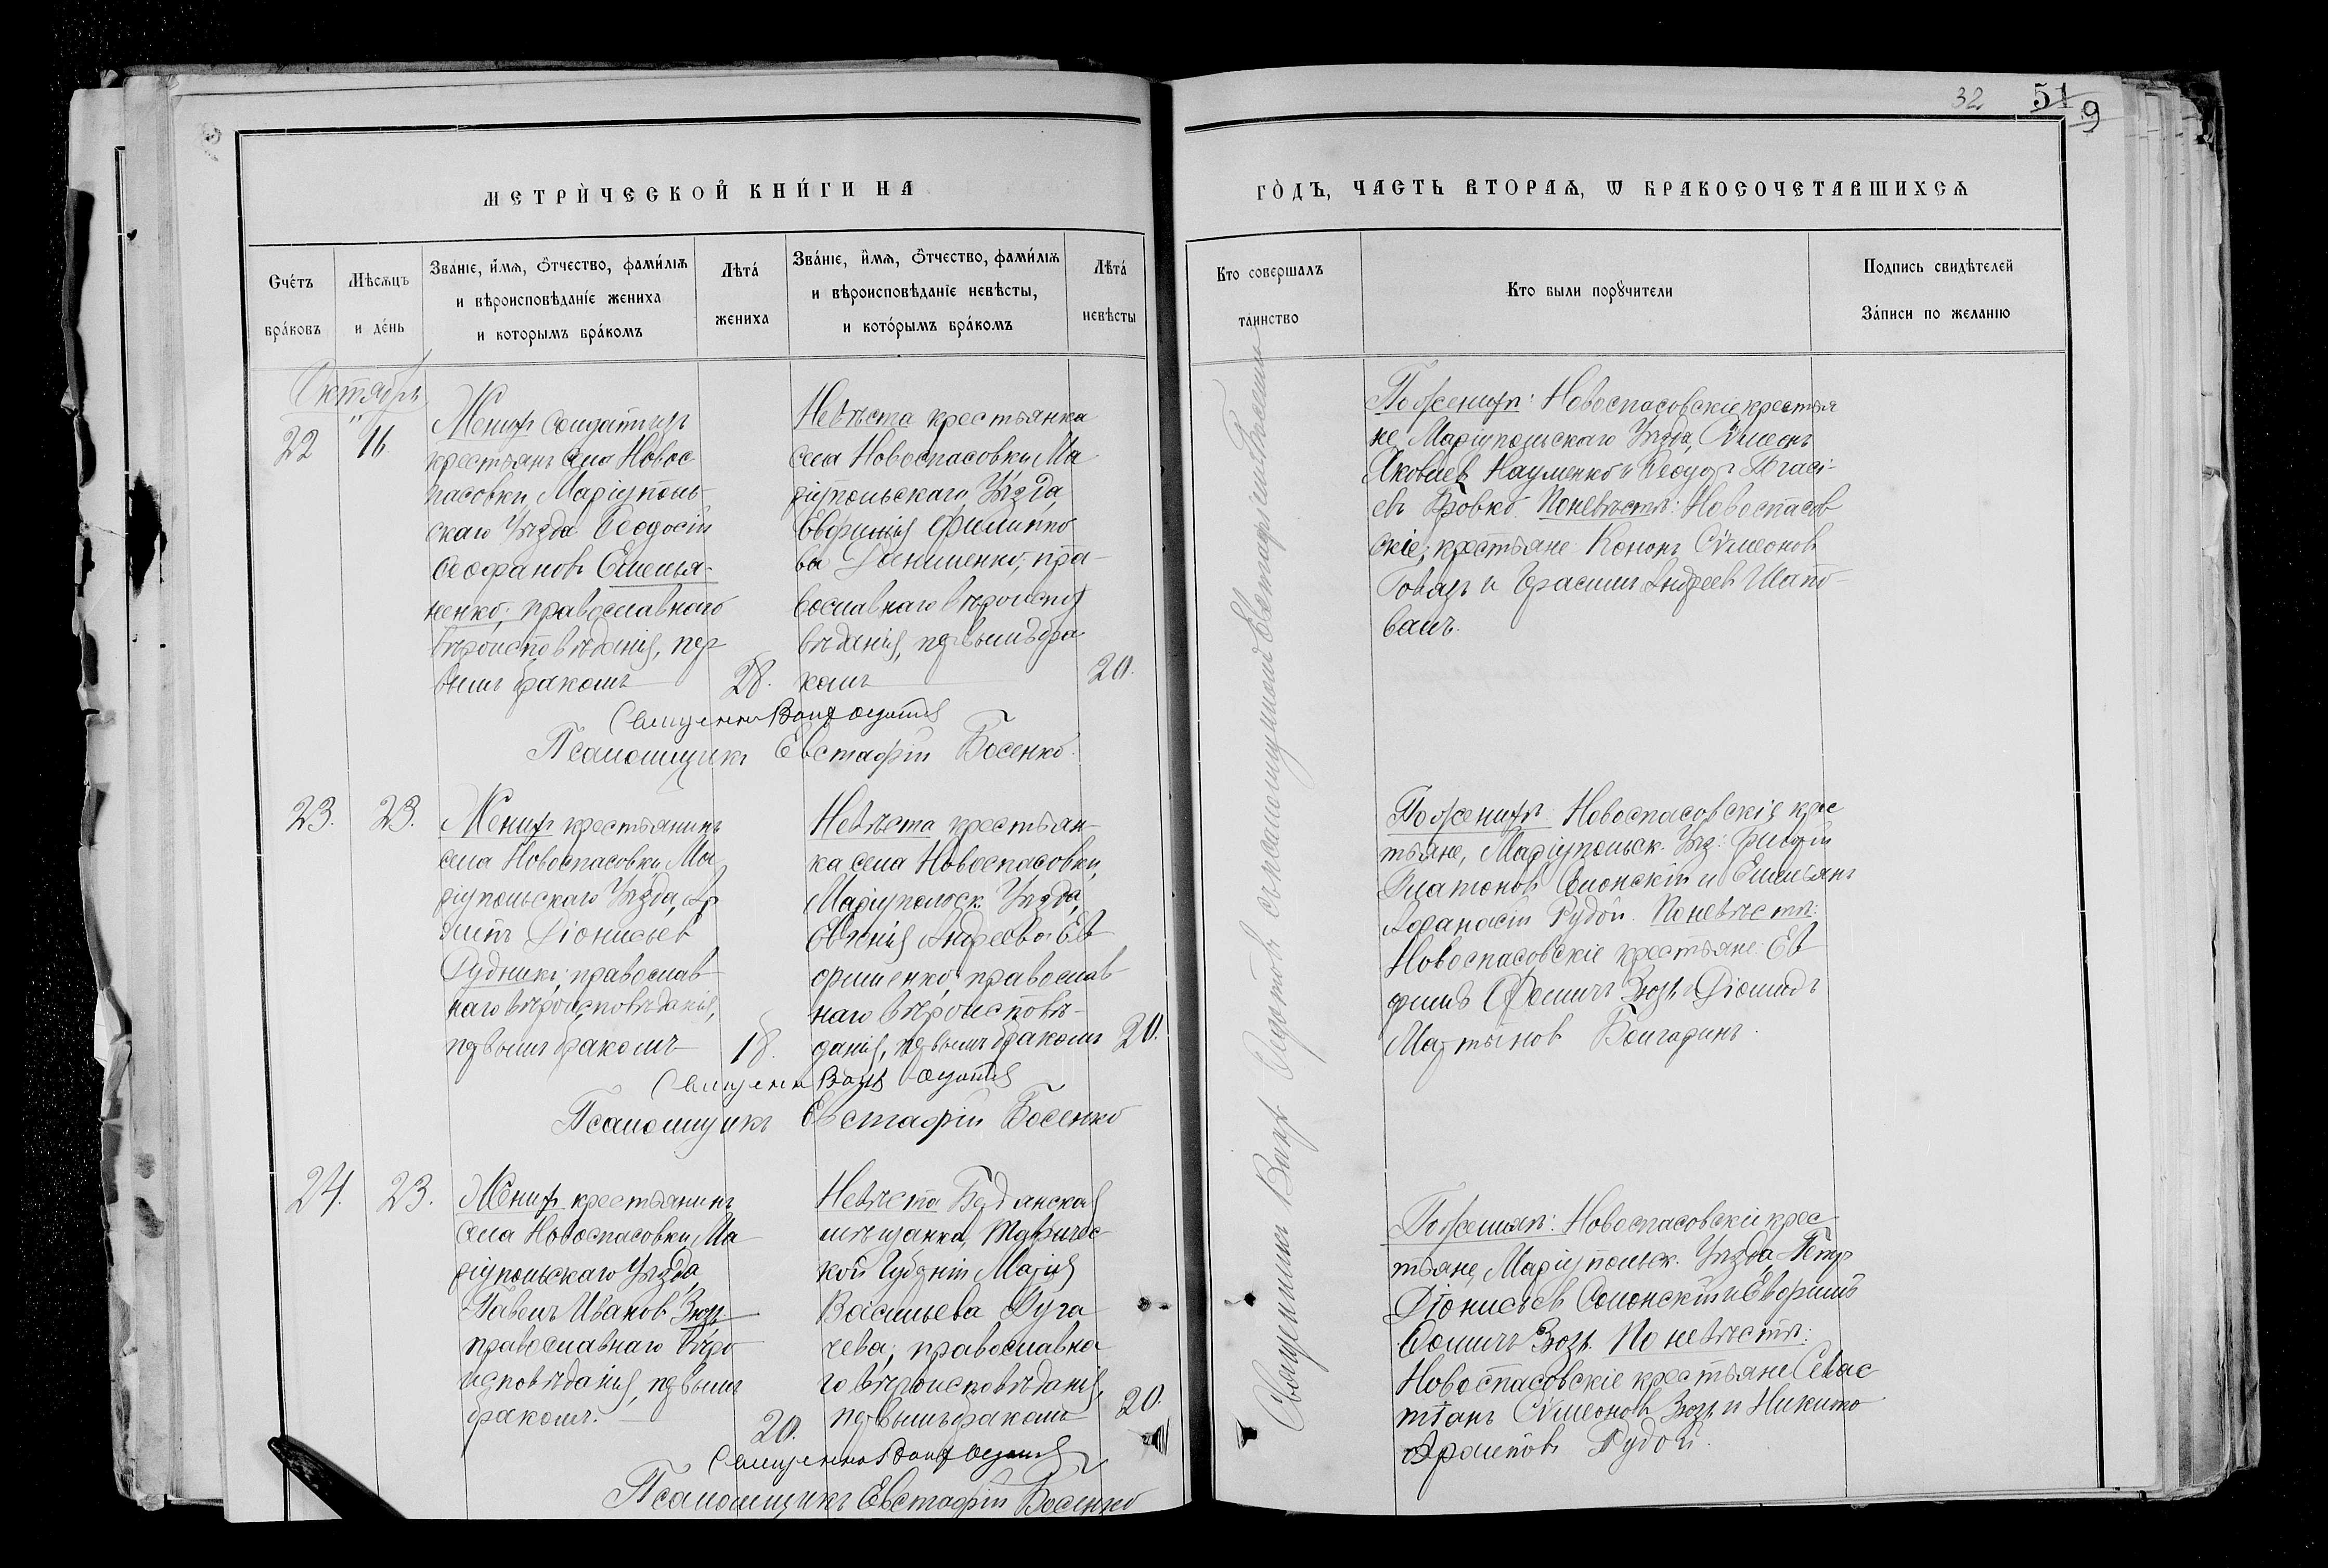 32 51
9
МЕТРИ́ЧЕСКОЙ КНИ́ГИ НА
ГО́ДЪ, ЧАСТЬ ВТОРАѦ, Ѿ БРАКОСОЧЕТАВШИХСѦ
Сче́тъ
бра́ковъ
Мѣсѧцъ
и де́нь
Зва́нїе, и́мѧ, ѻ́тчество, фами́лїѧ
и вѣроисповѣданїе жениха
и которымъ бра́комъ
Лѣта́
жениха
Зва́нїе, и́мѧ, ѻ́тчество, фами́лїѧ
и вѣроисповѣданїе невѣсты,
и кото́рымъ бра́комъ
Лѣта́
невѣсты
Кто совершалъ
таинство
Кто были порꙋчители
Подпись свидѣтелей
За́писи по желанїю
Октябрь
22
16
Женихъ
крестьянъ села Новос
пасовки, Маріуполь-
скаго Уѣзда Ѳеодосій
Ѳеофановъ Емелья-
ненко; православнаго
вѣроисповѣданія, пер
вымъ бракомъ
28.
Невѣста крестьянка
села Новоспасовки, Ма
ріупольскаго Уѣзда,
Евфимія Филиппо
ва Данименко, пра-
вославнаго вѣроиспо
вѣданія, первымъ бра
комъ
20.
Псаломщикъ Евстафій Босенко.
По женихѣ: Новоспасовскіе крестья
не, Маріупольскаго Уѣзда, Сѵмеонъ
Яковлев Науменко и Ѳеодоръ
евъ Вовко. По невѣстѣ: Новоспасов
скіе, крестьяне Кононъ Сѵмеонов
и Герасимъ Андреев Шапо-
валъ.
23.
23.
Женихъ крестьянинъ
села Новоспасовки, Ма
ріупольскаго Уѣзда,
Діонисьев
Рудникъ; православ
наго вѣроисповѣданія,
первымъ бракомъ
18.
Невѣста крестьян-
ка села Новоспасовки,
Маріупольск. Уѣзда,
Евгенія Андреева Ев
фименко, православ-
наго вѣроисповѣ-
данія, первымъ бракомъ
20.
Псаломщикъ Евстафій Босенко
По женихѣ: Новоспасовскія крес
тьяне, Маріупольск. Уѣз:
Платонов Слонскій и Емельянъ
Афанасій Рудой. По невѣстѣ:
Новоспасовскіе крестьяне: Ев
фимъ Ѳоминъ Зюзь и Діомидъ
Мартынов Болгаринъ.
24.
23.
Женихъ крестьянинъ
села Новоспасовки, Ма
ріупольскаго Уѣзда,
Павелъ Иванов Зюзь
православнаго вѣро
исповѣданія, первымъ
бракомъ.
20.
Невѣста Бердянская
мѣщанка, Тавричес
кой Губерніи Марія
Васильева Дуга
чева; православна
го вѣроисповѣданія,
первымъ бракомъ
20.
Псаломщикъ Евстафій Босенко
По женихѣ: Новоспасовскіе крес
тьяне, Маріупольск. Уѣзда, Петръ
Діонисьев Слонскій и Евфимъ
Ѳоминъ Зюзь. По невѣстѣ:
Новоспасовскіе крестьяне Севас
тіанъ Сѵмеоновъ Зюзь и Никита
Рудой.
Священникъ съ псаломщикомъ Евстафіемъ Босенко